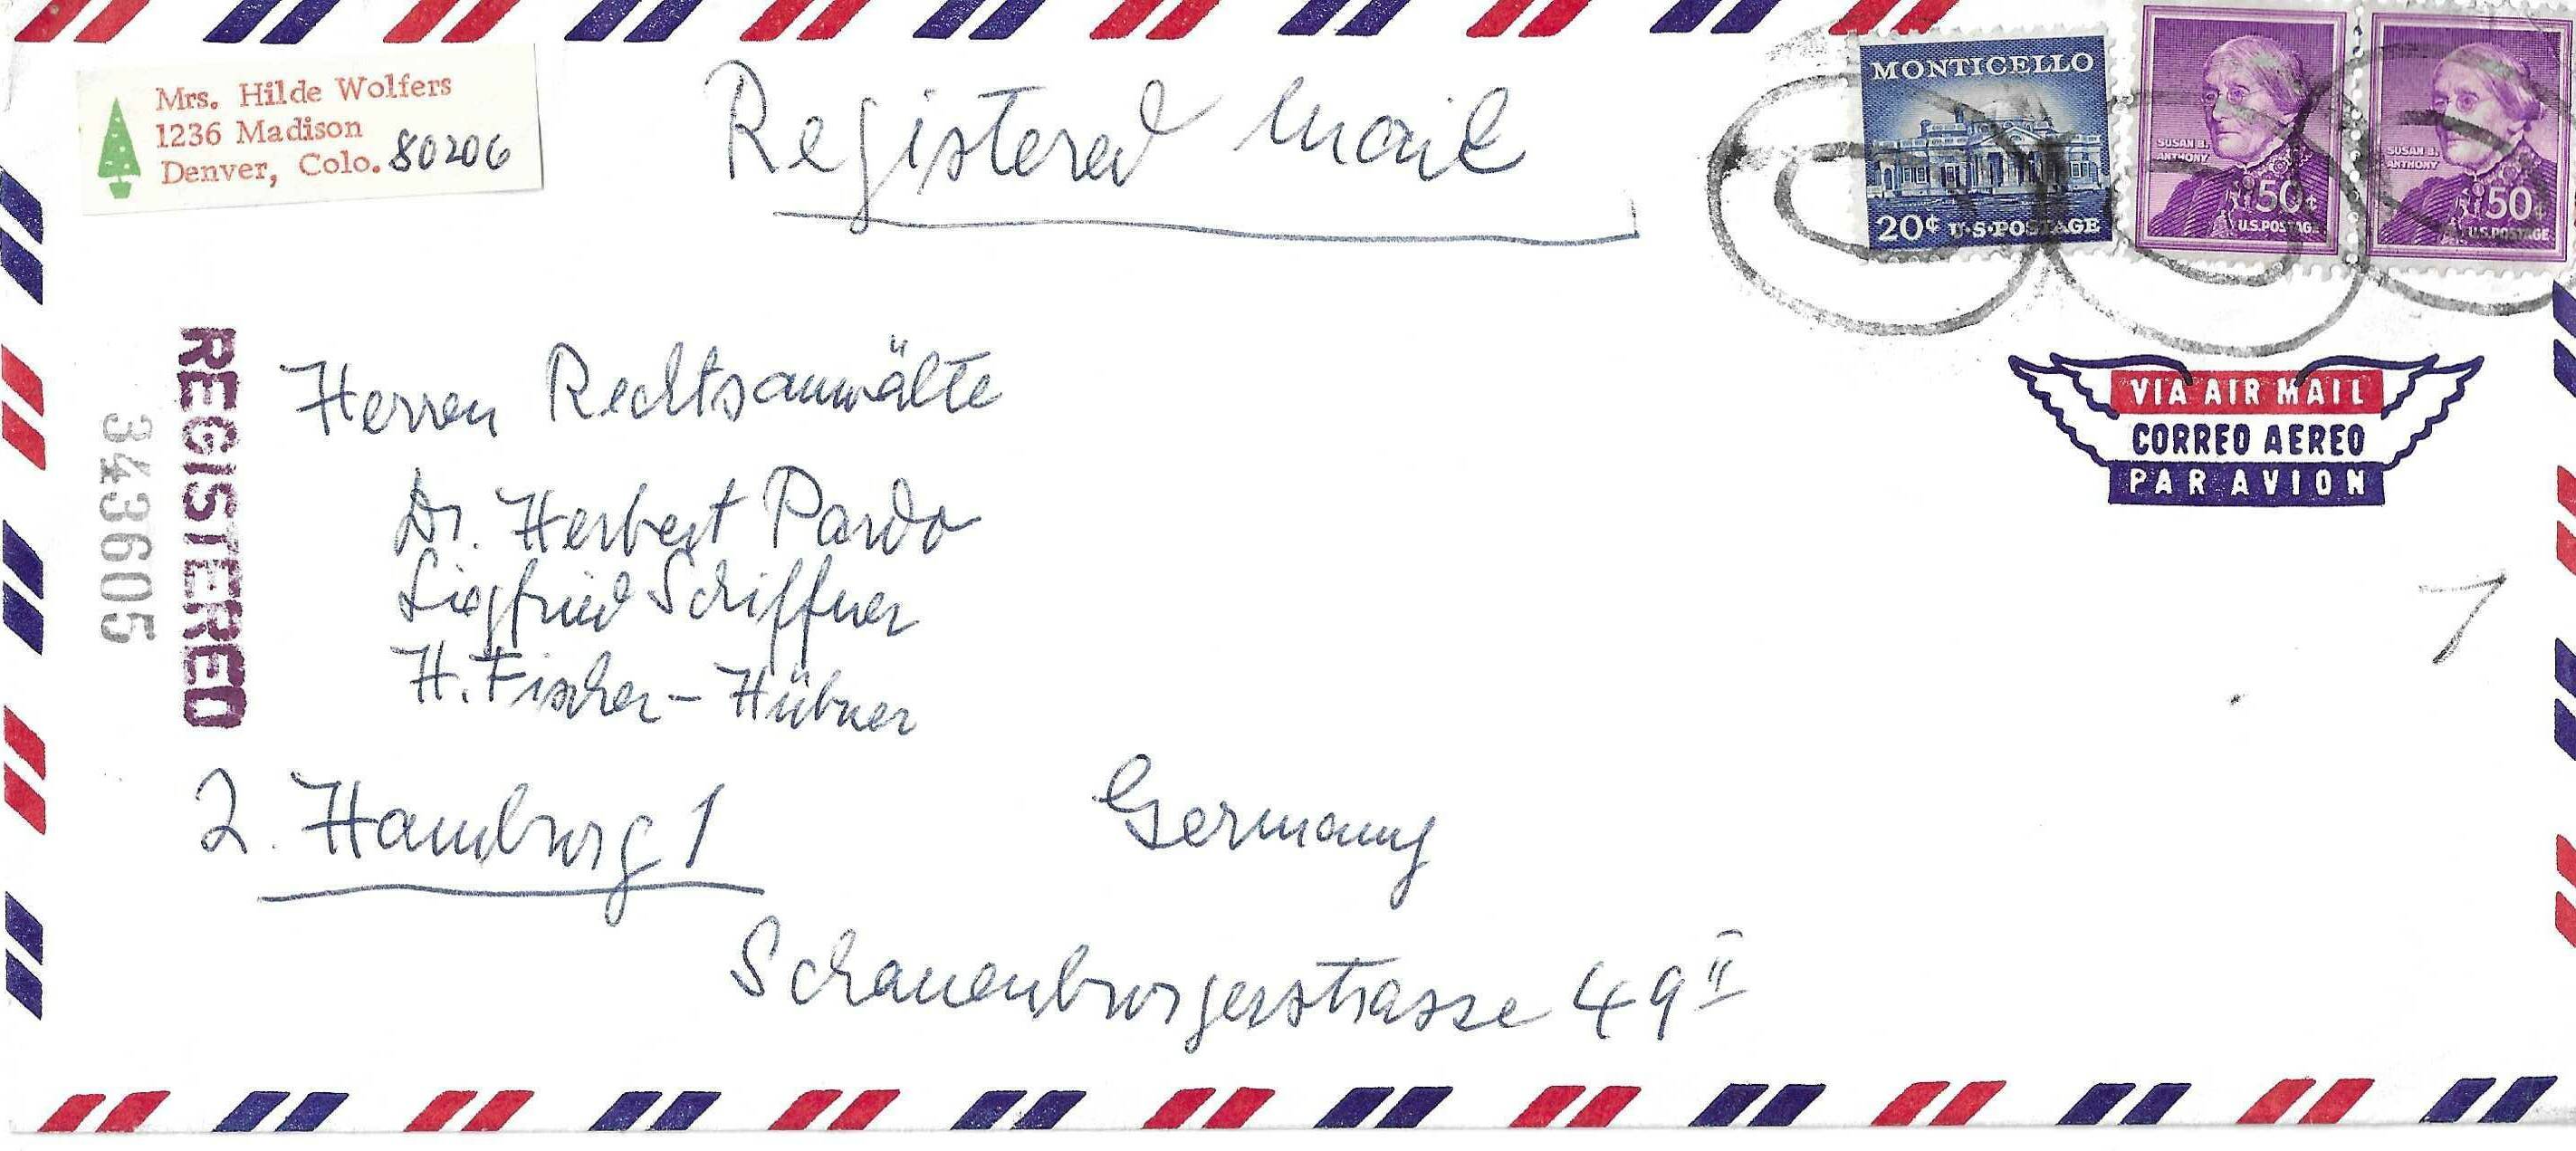 Mrs. Hilde Wolfers
1236 Madison
Denver, Colo. 80206
Registered Mail
MONTICELLO
20¢ U.S. POSTAGE
SUSAN B.
ANTHONY
50¢
U.S. POSTAGE
SUSAN B.
ANTHONY
50¢
U.S. POSTAGE
VIA AIR MAIL
CORREO AEREO
PAR AVION
REGISTERED
343605
Herren Rechtsanwälte
Dr. Herbert Pardo
Siegfried Schiffner
H. Fischer-Hübner
2. Hamburg 1
Germany
Schauenburgerstrasse 49 II